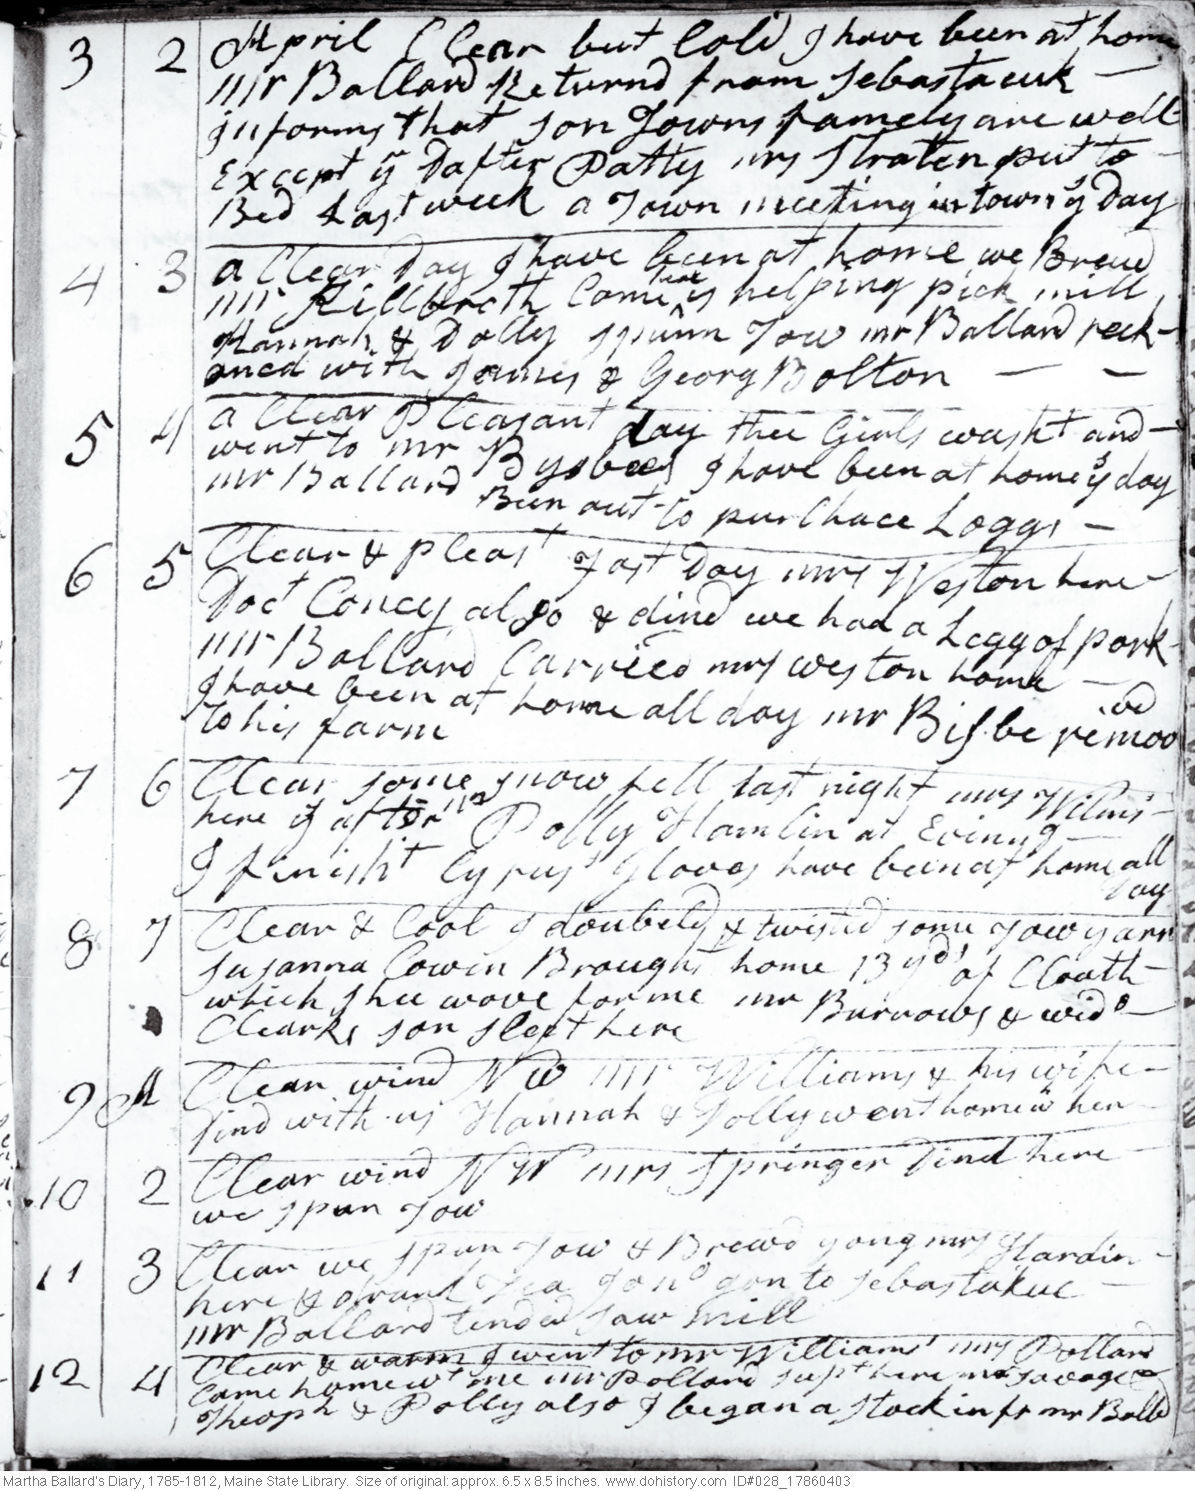 3 2 April Clear but Cold I have been at home
mr Ballard Returnd from Sebastacuk
Informs that son Towns famely are well
Except ye Dafter Patty mrs Straten put to
Bed Last week a Town meeting in town ys Day
4 3 a Clear Day I have been at home we Brewd
mr Killbreth Came here is helping pick mill
Hannah & Dolly spunn Tow mr Ballard reck-
oned with James & Georg Bolton
5 4 a Clear Pleasant day thee Girls washt and
went to mr Bysbees I have been at home ys day
mr Ballard Been out to purchace Loggs
6 5 Clear & pleast Fast Day mrs Weston here
Doct Coney also & dind we had a Legg of pork
mr Ballard Carried mrs weston home
I have been at home all day mr Bisbe remoovd
to his farm
7 6 Clear some snow fell last night mrs Wilms
here ys afternn Polly Hamlin at Evinng
I finisht Cyrus' Gloves have been at home all
Day
8 7 Clear & Cool I doubeld & twistd some Tow yarn
Susanna Cowin Brought home 13 yds of Cloath
which shee wove for me mr Burrows & wido
Clearks son slept here
9 A Clear wind NW mr Williams & his wife
Dind with us Hannah & Polly went home wt her
10 2 Clear wind NW mrs Springer Dind here
we spun Tow
11 3 Clear we spun Tow & Brewd yong mrs Hardin
here & drank Tea Jono gon to Sebastakuc
mr Ballard tended saw mill
12 4 Clear & warm I went to mr Williams' mrs Pollard
Came home wt me mr Pollard supt here mr Savage &
Theoph & Polly also I began a stockin fr mr Balld
Martha Ballard's Diary, 1785-1812, Maine State Library. Size of original: approx. 6.5 x 8.5 inches. www.dohistory.com ID#028_17860403